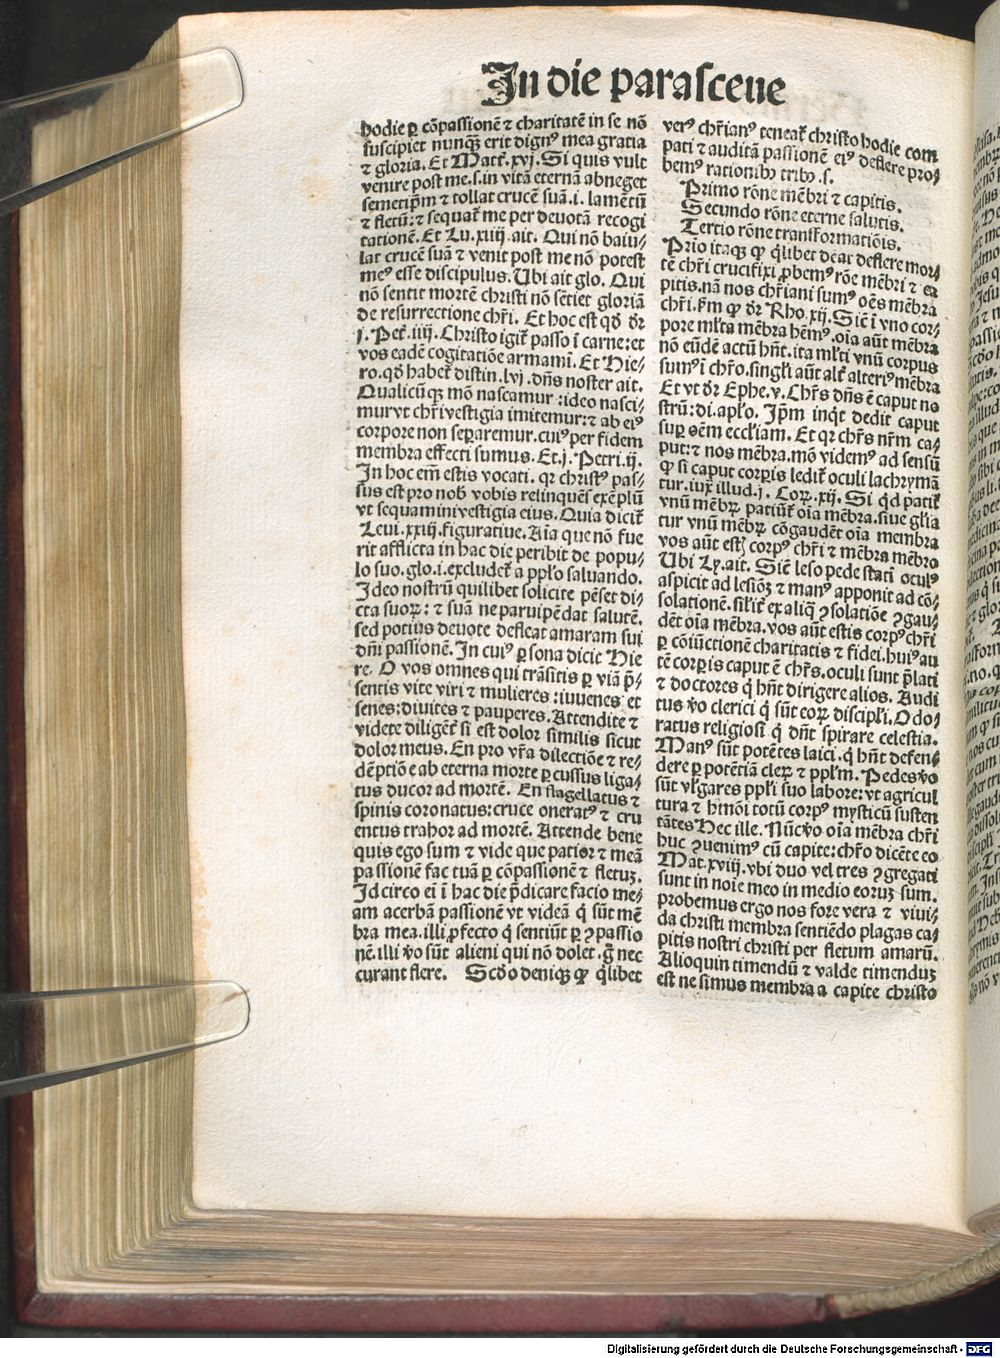 In die parasceue
hodie ꝑ cōpassionē ⁊ charitatē in se nō
susciꝑiet nunqꝫ erit dignꝰ mea gratia
⁊ gloria. Et Matt̄. xvj. Si quis vult
venire post me .s. in vitā eternā abneget
semetip̄m ⁊ tollat crucē suā .i. lamētū
⁊ fletū: ⁊ sequat̄ me per deuotā recogi
tationē. Et Lu. xiiij. ait. Qui nō baiu⸗
lat crucē suā ⁊ venit post me nō potest
meꝰ esse discipulus. Ubi ait glo. Qui
nō sentit mortē christi nō sētiet gloriā
de resurrectione chr̄i. Et hoc est qd̄ dr̄
j. Pet̄. iiij. Christo igit̄ passo ī carne: et
vos eadē cogitatiōe armami. Et Hie⸗
ro. qd̄ habet̄ distin. lvj. dn̄s noster ait.
Qualicūqꝫ mō nascamur: ideo nasci⸗
mur vt chr̄i vestigia imitemur: ⁊ ab eiꝰ
corpore non seꝑaremur. cuiꝰ per fidem
membra effecti sumus. Et .j. Petri. ij.
In hoc em̄ estis vocati. qr christꝰ pas⸗
sus est pro nob̄ vobis relinquēs exēplū
vt sequamini vestigia eius. Quia dicit̄
Leui. xxiij. figuratiue. Aīa que nō fue
rit afflicta in hac die peribit de popu⸗
lo suo. glo. i. excludet̄ a pplo saluando.
Ideo nostrū quilibet solicite pēset di⸗
cta suoꝝ: ⁊ suā ne paruipēdat salutē.
sed potius deuote defleat amaram sui
dn̄i passionē. In cuiꝰ ꝑsona dicit Hie
re. O vos omnes qui trāsitis ꝑ viā p̄⸗
sentis vite viri ⁊ mulieres: iuuenes et
senes: diuites ⁊ pauperes. Attendite ⁊
videte diligēt̄ si est dolor similis sicut
dolor meus. En pro vr̄a dilectiōe ⁊ re⸗
dēptiōe ab eterna morte ꝑcussus liga⸗
tus ducor ad mortē. En flagellatus ⁊
spinis coronatus: cruce oneratꝰ ⁊ cru
entus trahor ad mortē. Attende bene
quis ego sum ⁊ vide que patior ⁊ meā
passionē fac tuā ꝑ cōpassionē ⁊ fletuꝫ.
Idcirco ei ī hac die p̄dicare facio me⸗
am acerbā passionē vt videā q̄ sūt mē
bra mea. illi ꝓfecto q̄ sentiūt ꝑ ꝯpassio
nē. illi v̄o sūt alieni qui nō dolēt. g̊ nec
curant flere. Scd̄o deniqꝫ qꝫ q̄libet
verꝰ chr̄ianꝰ teneat̄ christo hodie com
pati ⁊ audita passionē eiꝰ deflere pro⸗
bemꝰ rationibꝰ tribꝰ .s.
Primo rōne mēbri ⁊ capitis.
Secundo rōne eterne salutis.
Tertio rōne transformatiōis.
Prīo itaqꝫ qꝫ q̄libet deat deflere mor⸗
tē chr̄i crucifixi ꝓbemꝰ rōe mēbri ⁊ ca
pitis. nā nos chr̄iani sumꝰ oēs mēbra
chr̄i. s̄m qꝫ dr̄ Rho. xij. Sic̄ ī vno cor⸗
pore ml̄ta mēbra hēmꝰ. oīa aūt mēbra
nō eūdē actū hn̄t. ita ml̄ti vnū corpus
sumꝰ ī chr̄o. singl̄i aūt alt̄ alteriꝰ mēbra
Et vt dr̄ Ephe. v. Chr̄s dn̄s ē caput no
strū: di. apl̄o. Ip̄m inqͥt dedit caput
suꝑ oēm eccl̄iam. Et qr chr̄s nr̄m ca⸗
put: ⁊ nos mēbra. mō videmꝰ ad sensū
qꝫ si caput corꝑis ledit̄ oculi lachrymā
tur. iux̄ illud. j. Cor. xij. Si qd̄ patit̄
vnū mēbꝝ patiūt̄ oīa mēbra. siue gl̄ia
tur vnū mēbꝝ cōgaudēt oīa membra
vos aūt estꝭ corpꝰ chr̄i ⁊ mēbra mēbro
Ubi Ly. ait. Sic̄ leso pede statī oculꝰ
aspicit ad lesiōꝫ ⁊ manꝰ apponit ad cō⸗
solationē. sil̄it̄ ex aliq̄ ꝯsolatiōe ꝯgau⸗
dēt oīa mēbra. vos aūt estis corpꝰ chr̄i
ꝑ cōiūctionē charitatis ⁊ fidei. huiꝰ au
tē corꝑis caput ē chr̄s. oculi sunt p̄lati
⁊ doctores q̄ hn̄t dirigere alios. Audi
tus v̄o clerici q̄ sūt eoꝝ discipl̄i. Odo⸗
ratus religiosi q̄ dn̄t spirare celestia.
Manꝰ sūt potētes laici. q̄ hn̄t defen⸗
dere ꝑ potētiā cleꝝ ⁊ ppl̄m. Pedes v̄o
sūt vl̄gares ppl̄i suo labore: vt agricul
tura ⁊ hmōi totū corpꝰ mysticū susten
tātes Hec ille. Nūc v̄o oīa mēbra chr̄i
huc ꝯuenimꝰ cū capite: chr̄o dicēte eo
Mat. xviij. vbi duo vel tres ꝯgregati
sunt in noīe meo in medio eoruꝫ sum.
probemus ergo nos fore vera ⁊ viui⸗
da christi membra sentiēdo plagas ca⸗
pitis nostri christi per fletum amarū.
Alioquin timendū ⁊ valde timenduꝫ
est ne simus membra a capite christo
Digitalisierung gefördert durch die Deutsche Forschungsgemeinschaft - DFG